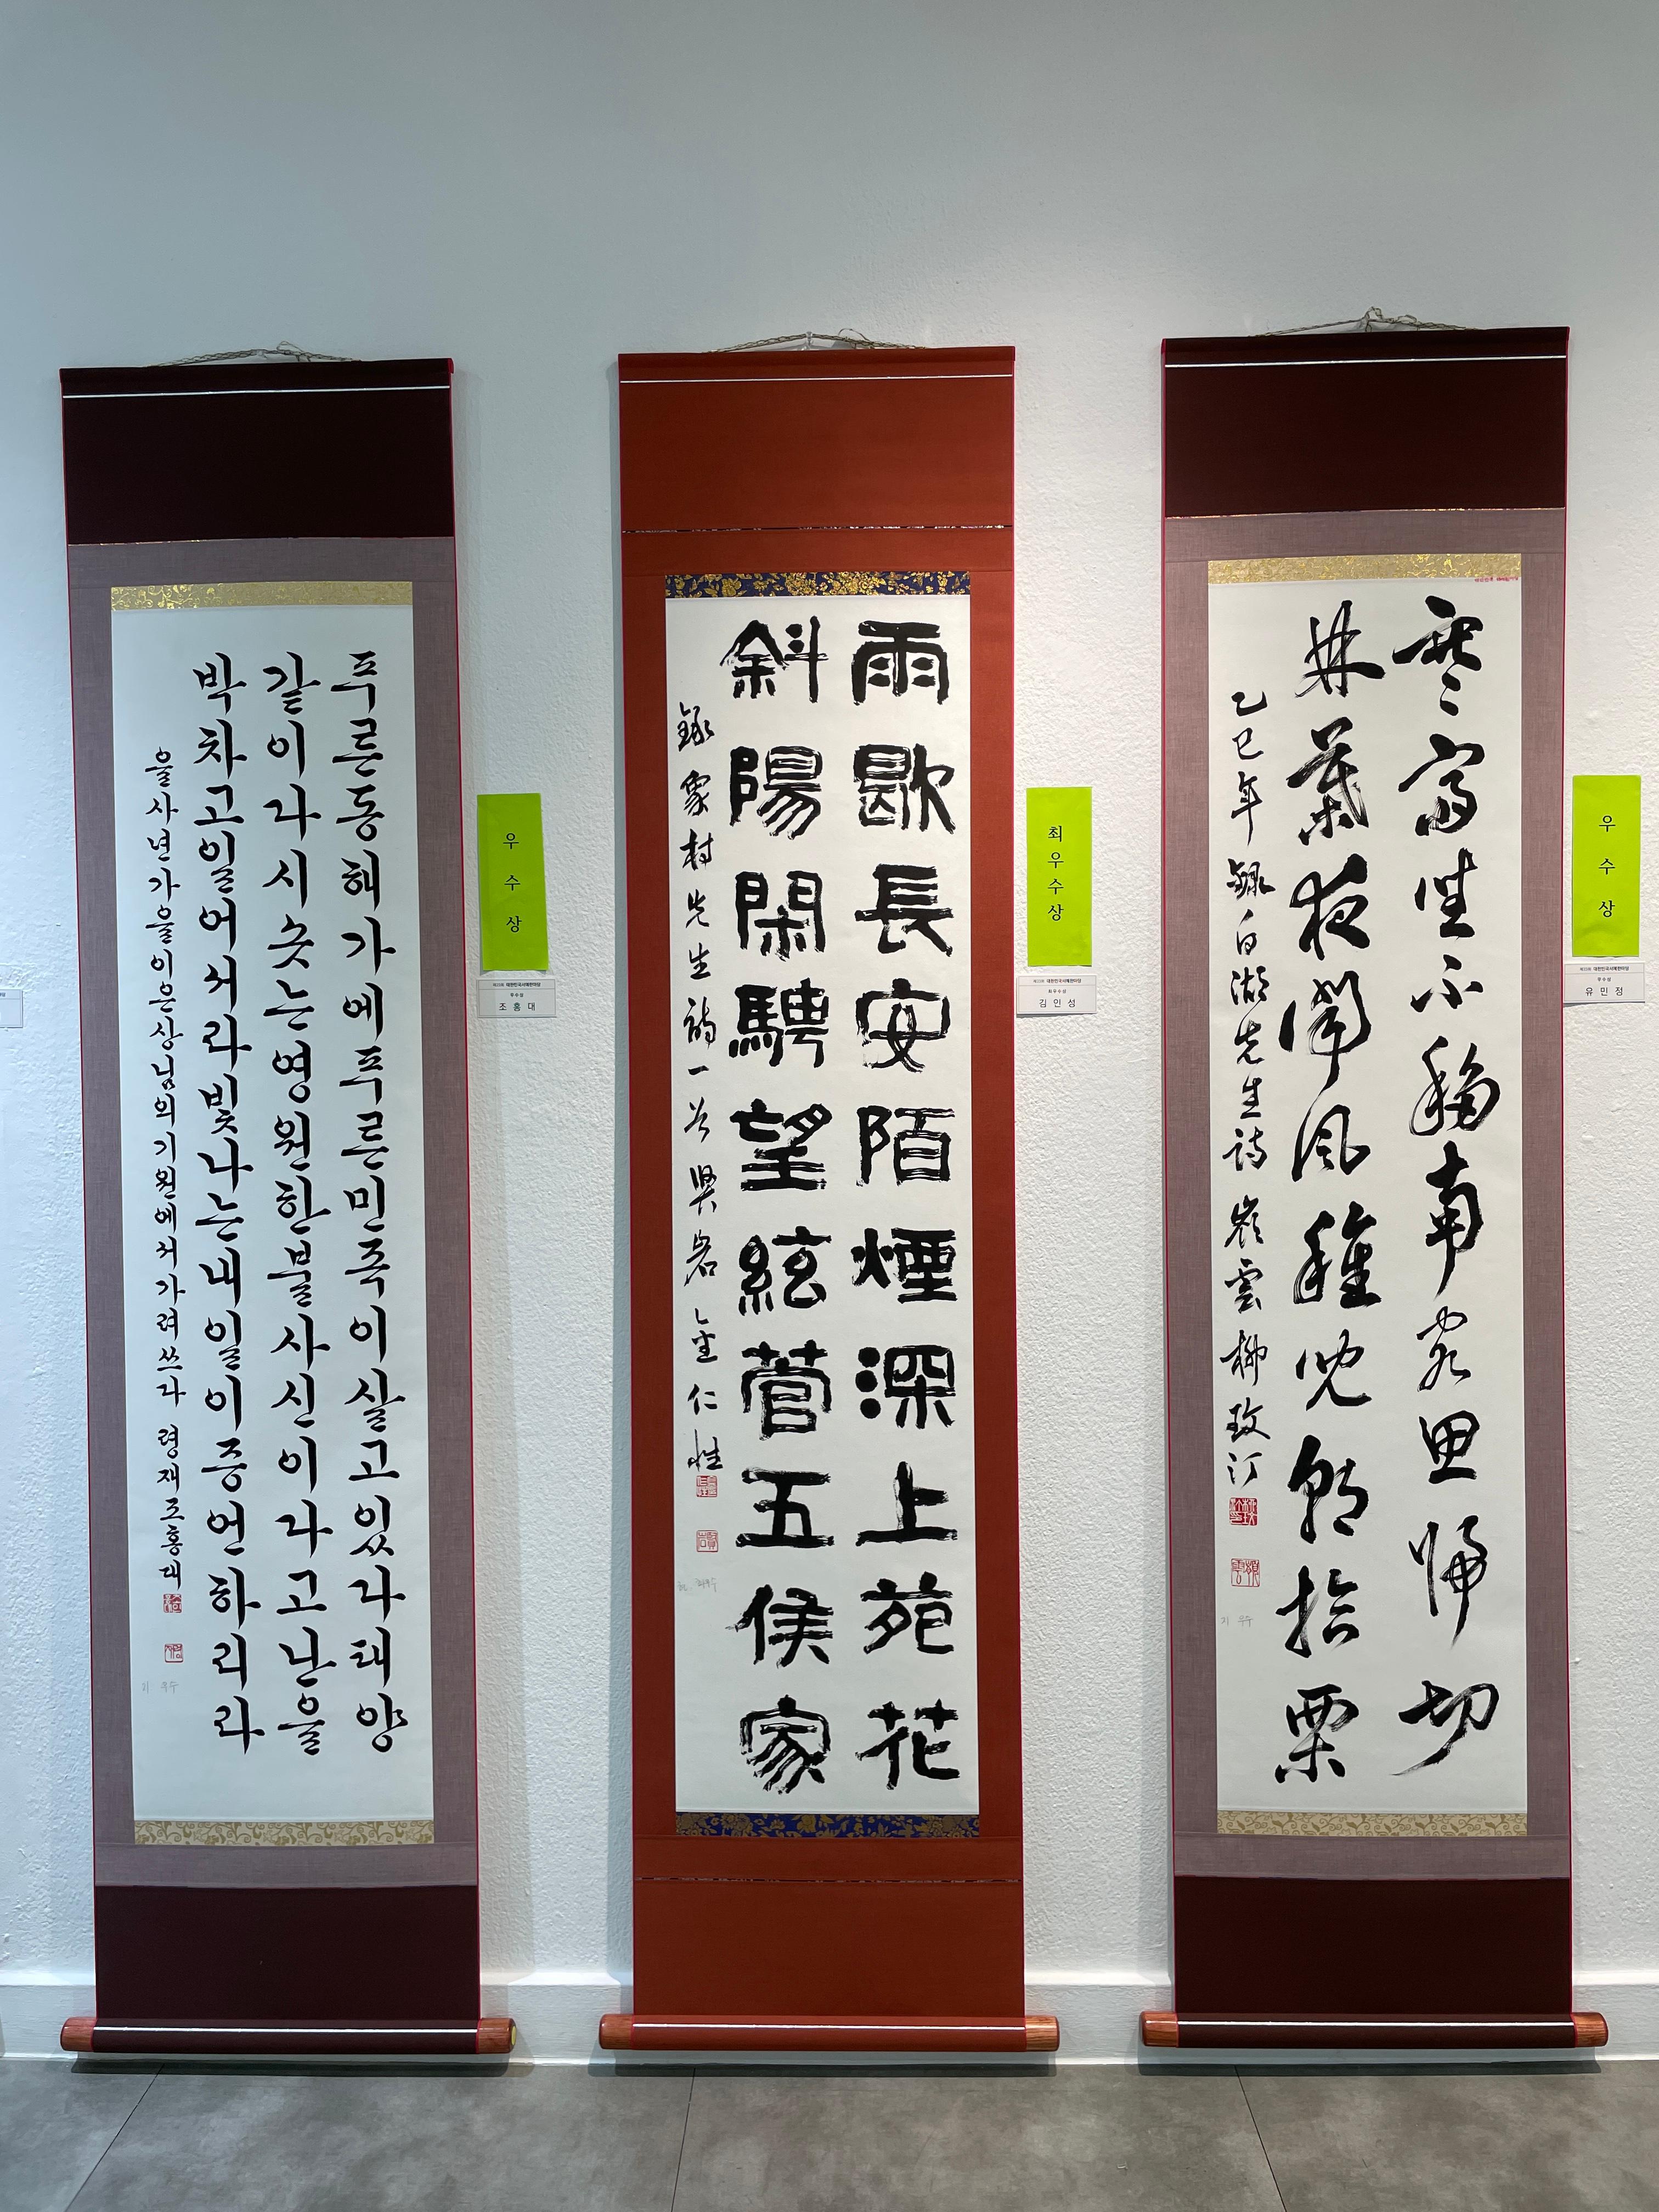 푸른동해가에푸른민족이살고있다태양
같이다시솟는영원한불사신이라고난을
박차고일어서라빛나는내일이증언하리라
을사년가을이은상님의기원에서가려쓰다 령재조홍대
우수상
대한민국서예한마당
우수상
조홍대
雨歇長安陌煙深上苑花
斜陽閑騁望絃菅五侯家
錄象村先生詩一首 興岩 金仁性
최우수상
대한민국서예한마당
최우수상
김인성
寒窓坐不移南客思歸切
林葉夜鬧風稚兒朝拾栗
乙巳年 錄白湖先生詩 雲 柳玟汀
우수상
대한민국서예한마당
우수상
유민정